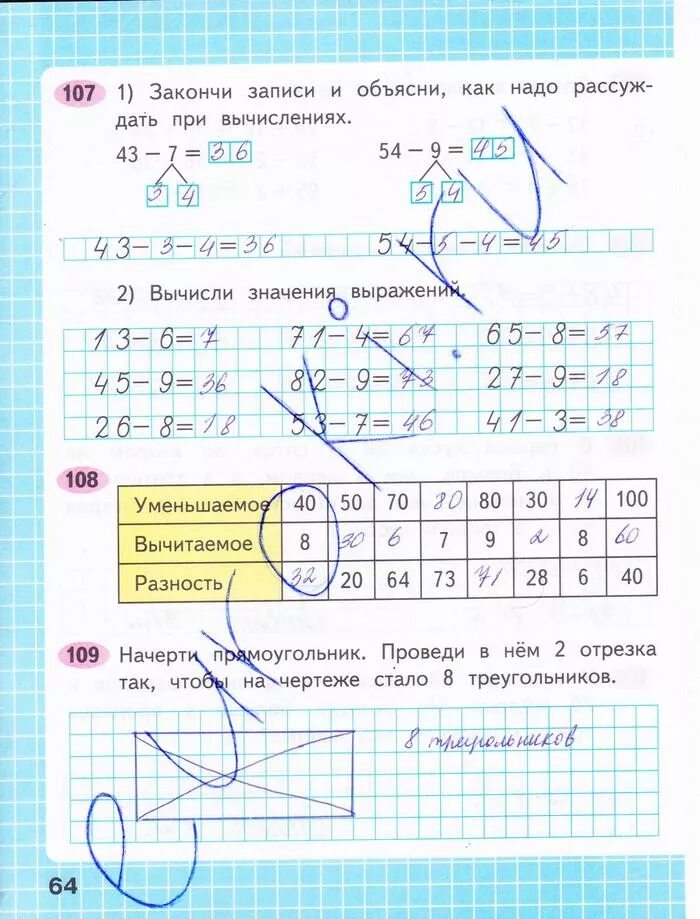 107 1) Закончи записи и объясни, как надо рассуж-
дать при вычислениях.
43 − 7 = 36 54 − 9 = 45
3 4 5 4
43−3−4=36 54−5−4=45
2) Вычисли значения выражений.
13−6=7 71−4=67 65−8=57
45−9=36 82−9=73 27−9=18
26−8=18 53−7=46 41−3=38
108
Уменьшаемое 40 50 70 80 80 30 14 100
Вычитаемое 8 30 6 7 9 2 8 60
Разность 32 20 64 73 71 28 6 40
109 Начерти прямоугольник. Проведи в нём 2 отрезка
так, чтобы на чертеже стало 8 треугольников.
8 треугольников
64